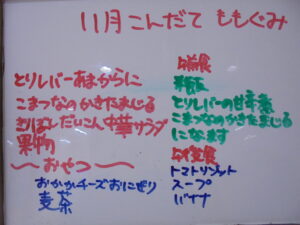 11月こんだて ももぐみ
とりレバーあまからに
こまつなのかきたまじる
きりぼしだいこん中華サラダ
果物
〜おやつ〜
おかかチーズおにぎり
麦茶
午前食
軟飯
とりレバーの甘辛煮
こまつなのかきたまじる
になります
午後食
トマトリゾット
スープ
バナナ